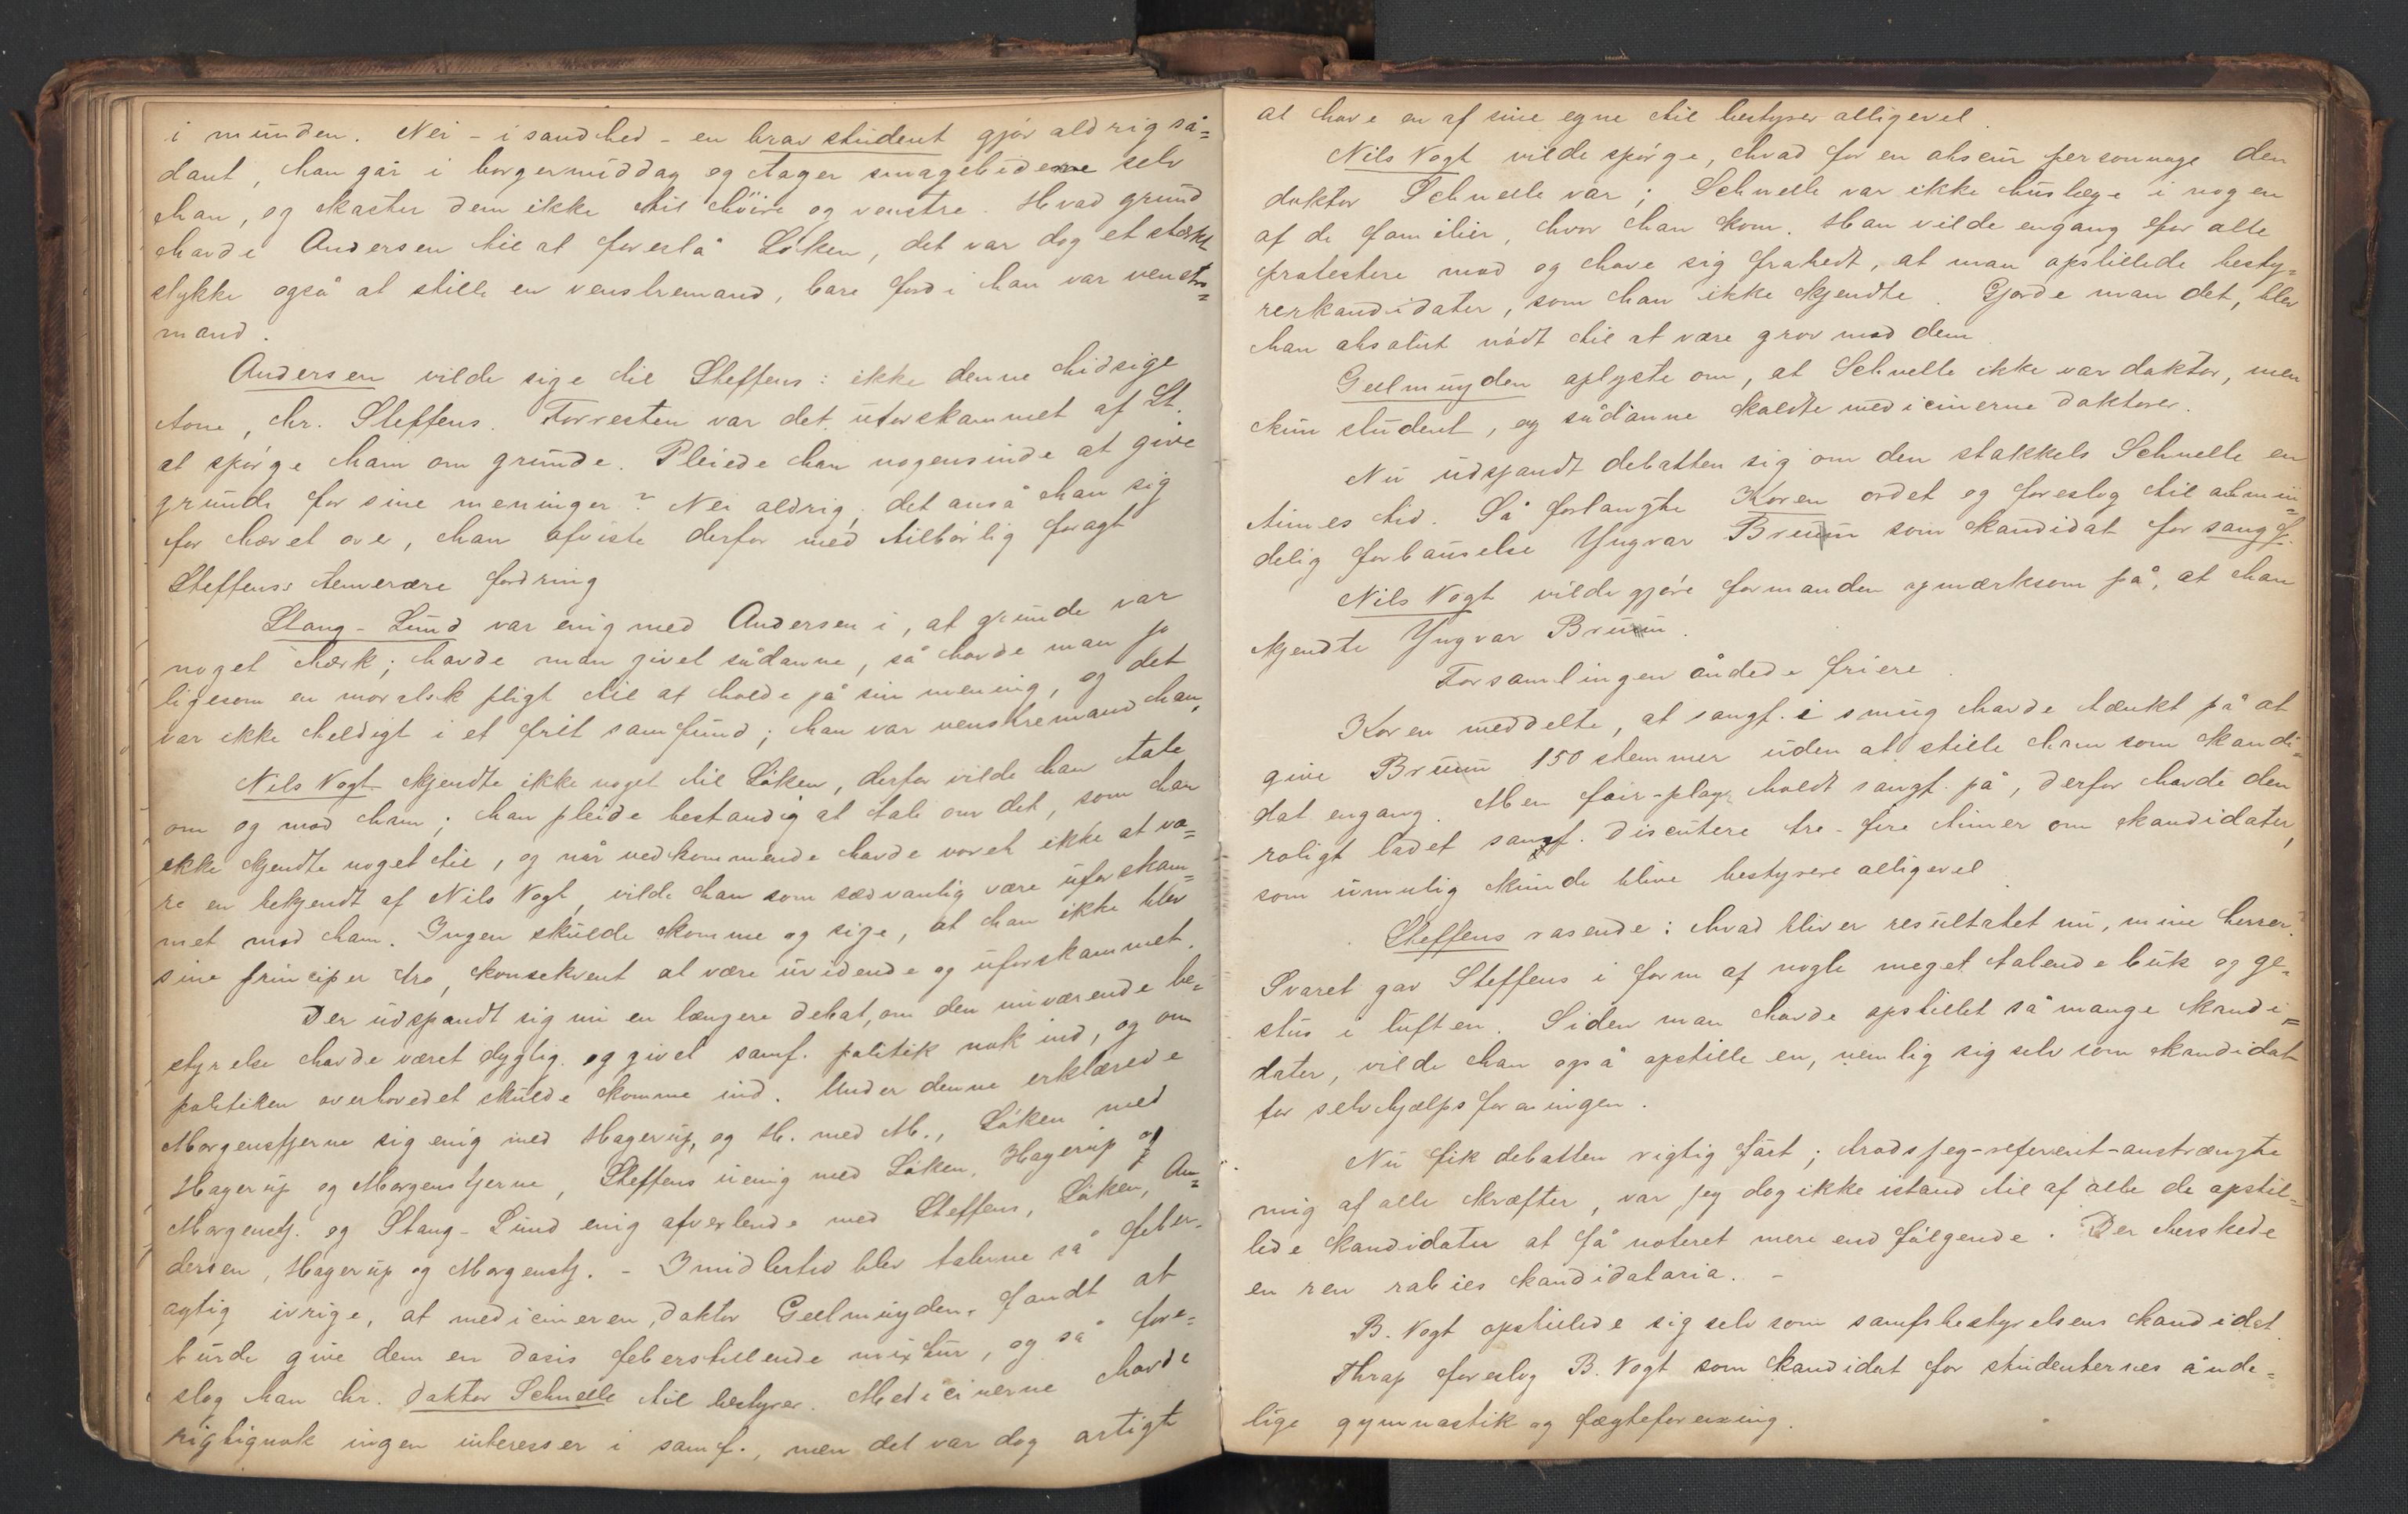 i munden. Nei - i sandhed - en brav student gjör aldrig så=
dant, han går i borgermiddag og tager smagebidene selv
han, og kaster dem ikke til höire og venstre. Hvad grund
havde Andersen til at foreslå Löken, det var dog et stærkt
stykke også at stille en venstremand, bare fordi han var venstre=
mand.
Andersen vilde sige til Steffens: ikke denne hidsige
tone, hr. Steffens. Forresten var det uforskammet af St.
at spörge ham om grunde. Pleiede han nogensinde at give
grunde for sine meninger? Nei aldrig, det anså han sig
for hævet over, han afviste derfor med tilbörlig foragt
Steffens's temerære fordring
Stang-Lund var enig med Andersen i, at grunde var
noget hærk; havde man givet sådanne, så havde man jo
ligesom en moralsk pligt til at holde på sin mening, og det
var ikke heldigt i et frit samfund; han var venstremand han,
Nils Vogt kjendte ikke noget til Löken, derfor vilde han tale
om og mod ham; han pleide bestandig at tale om det, som han
ikke kjendte noget til, og når vedkommende havde vovet ikke at væ=
re en bekjendt af Nils Vogt, vilde han som sædvanlig være uforskam=
met mod ham. Ingen skulde komme og sige, at han ikke blev
sine principer tro, konsekvent at være uvidende og uforskammet.
Der udspandt sig nu en længere debat, om den nuværende be=
styrelse havde været dygtig og givet samf. politik nok ind, og om
politiken overhovedet skulde komme ind. Under denne erklærede
Morgenstjerne sig enig med Hagerup, og H. med M., Löken med
Hagerup og Morgenstjerne, Steffens uenig med Löken, Hagerup og
Morgenstj. og Stang-Lund enig afvexlende med Steffens, Löken, An=
dersen, Hagerup og Morgenstj. - Imidlertid blev talerne så feber=
agtig ivrige, at medicineren, doktor Geelmuyden, fandt at
burde give dem en dosis feberstillende mixtur, og så fore=
slog han hr. doktor Schnelle til bestyrer. Medicinerne havde
rigtignok ingen interesser i samf., men det var dog artigt
at have en af sine egne til bestyrer alligevel.
Nils Vogt vilde spörge, hvad for en obscur personnage den
doktor Schnelle var; Schnelle var ikke huslæge i nogen
af de familier, hvor han kom. Han vilde engang for alle
protestere mod og have sig frabedt, at man opstillede besty=
rerkandidater, som han ikke kjendte. Gjorde man det, blev
han absolut nödt til at være grov mod dem.
Geelmuyden oplyste om, at Schnelle ikke var doktor, men
kun student, og sådanne kaldte medicinerne doktorer.
Nu udspandt debatten sig om den stakkels Schnelle en
times tid. Så forlangte Koren ordet og foreslog til almin=
delig forbauselse Yngvar Bruun som kandidat for sangf.
Nils Vogt vilde gjöre formanden opmærksom på, at han
kjendte Yngvar Bruun.
Forsamlingen åndede friere.
Koren meddelte, at sangf. i smug havde tænkt på at
give Bruun 150 stemmer uden at stille ham som kandi=
dat engang. Men fair-play holdt sangf. på, derfor havde den
roligt ladet samf. discutere tre-fire timer om kandidater,
som umulig kunde blive bestyrere alligevel.
Steffens rasende: hvad bliver resultatet nu, mine herrer?
Svaret gav Steffens i form af nogle meget talende buk og ge=
stus i luften. Siden man havde opstillet så mange kandi=
dater, vilde han også opstille en, nemlig sig selv som kandidat
for selvhjælpsforeningen.
Nu fik debatten rigtig fart; trods jeg-referent-anstrængte
mig af alle kræfter, var jeg dog ikke istand til af alle de opstil=
lede kandidater at få noteret mere end fölgende. Der herskede
en ren rabies kandidataria. -
B. Vogt opstillede sig selv som samfsbestyrelsens kandidat.
Thrap foreslog B. Vogt som kandidat for studenternes ånde=
lige gymnastik og fægteforening.